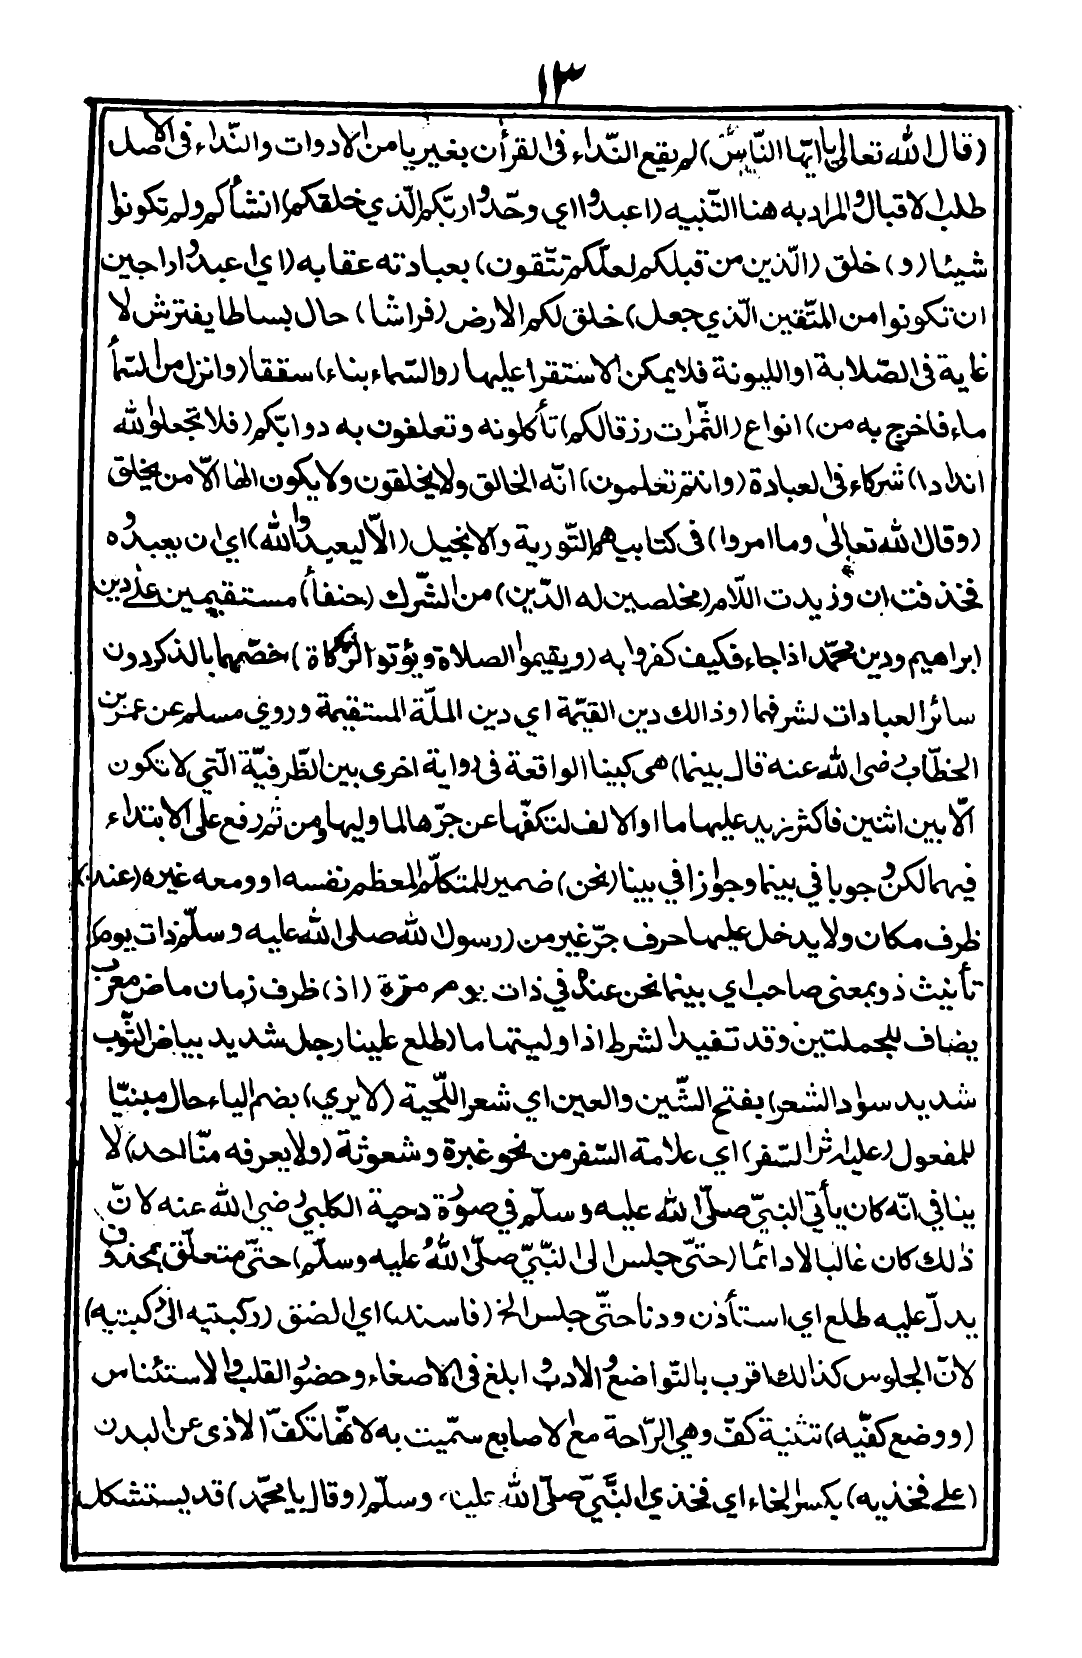 ١٣
(قال الله تعالى ياايّها النّاس) لم يقع النّداء فى القرأن بغير يا من الادوات والنّداء فى الاصل
طلب الاقبال والمراد به هنا التّنبيه (اعبدوا اي وحّدوا ربّكم الّذي خلقكم) انشأكم ولم تكونوا
شيئا (و) خلق (الّذين من قبلكم لعلّكم تتّقون) بعبادته عقابه (اي اعبدوا راجين
ان تكونوا من المتّقين الّذي جعل) خلق لكم الارض (فراشا) حال بساطا يفترش لا
غاية فى الصّلابة او الليونة فلا يمكن الاستقرار عليها (والسّماء بناء) سقفا (وانزل من السّمأ
ماء فاخرج به من) انواع (الثّمرات رزقا لكم) تأكلونه وتعلفون به دوابّكم (فلا تجعلوا لله
اندادا) شركاء فى العبادة (وانتم تعلمون) انّه الخالق ولا يخلقون ولا يكون الها الّا من يخلق
(وقال الله تعالى وما امروا) فى كتابيهم التّورية والانجيل (الّا ليعبدوا الله) اي ان يعبدوه
فحذفت ان وزيدت اللّام (مخلصين له الدّين) من الشّرك (حنفأ) مستقيمين على دين
ابراهيم ودين محمّد اذا جاء فكيف كفروا به (ويقيموا الصلاة ويؤتوا الزّكاة) خصّهما بالذكر دون
سائر العبادات لشرفهما (وذالك دين القيّمة اي دين الملّة المستقيمة وروي مسلم عن عمر بن
الخطّاب رضى الله عنه قال بينما) هي كبينا الواقعة فى رواية اخرى بين الظّرفيّة الّتي لا تكون
الّا بين اثنين فاكثر زيد عليها ما او الالف لتكفّها عن جرّها لما وليها ومن ثمّ رفع على الابتداء
فيهما لكن وجوبا في بينما وجوازا في بينا (نحن) ضمير للمتكلّم المعظم نفسه او ومعه غيره (عند)
ظرف مكان ولا يدخل عليها حرف جرّ غير من (رسول الله صلى الله عليه وسلّم ذات يوم)
تأنيث ذو بمعنى صاحب اي بينما نحن عنده في ذات يوم مرّة (اذ) ظرف زمان ماض معرب
يضاف للجملتين وقد تفيد الشرط اذا وليتها ما (طلع علينا رجل شديد بياض الثّوب
شديد سواد الشعر) بفتح الشّين والعين اي شعر اللّحية (لا يري) بضم الياء حال مبنيّا
للمفعول (عليه اثر السّفر) اي علامة السّفر من نحو غبرة وشعوثة (ولا يعرفه منّا احد) لا
ينافي انّه كان يأتي النبيّ صلّى الله عليه وسلّم في صورة دحية الكلبي رضي الله عنه لانّ
ذلك كان غالبا لا دائما (حتّى جلس الى النّبيّ صلّى الله عليه وسلّم) حتّى متعلّق بمحذوف
يدلّ عليه طلع اي استأذن ودنا حتّى جلس الخ (فاسند) اي الصق (ركبتيه الى ركبتيه)
لانّ الجلوس كذالك اقرب بالتّواضع والادب وابلغ فى الاصغاء وحضور القلب والاستئناس
(ووضع كفّيه) تثنية كفّ وهي الرّاحة مع الاصابع سمّيت به لانّها تكفّ الاذى عن البدن
(على فخذيه) بكسر الخاء اي فخذي النّبيّ صلّى الله عليه وسلّم (وقال يا محمّد) قد يستشكل